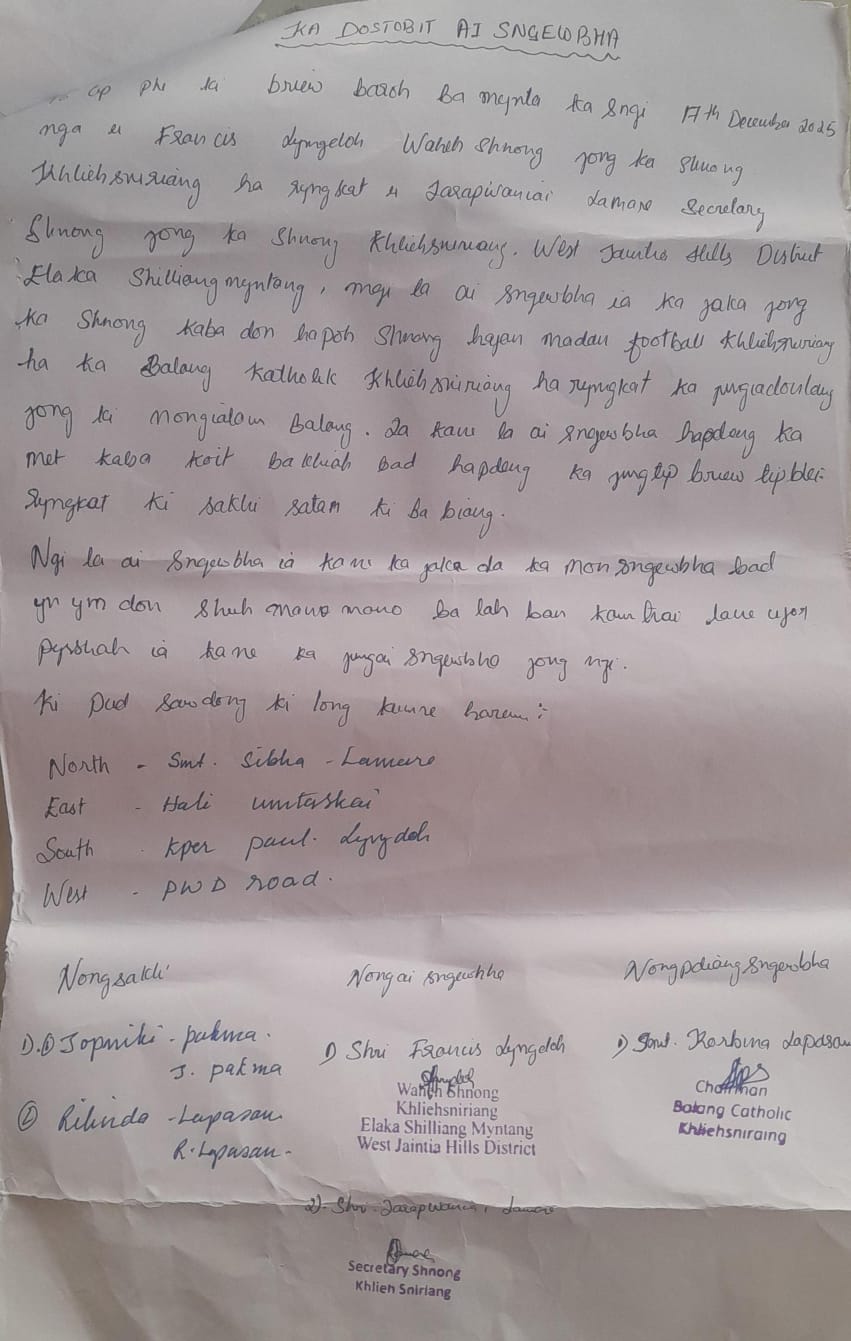 KA DOSTOBIT AI SNGEWBHA
ap phi ki briew baroh ba mynta ka sngi 17th December 2025
nga u Francis Lyngdoh Waheh Shnong jong ka Shnong
Khliehsniriang ha ryngkat u Larapwaniai Lamare Secretary
Shnong jong ka Shnong Khliehsniriang. West Jaintia Hills District
Elaka Shilliang myntang, ngi la ai sngewbha ia ka jaka jong
ka Shnong kaba don hapoh Shnong hajan madan football Khliehsniriang
ha ka Balang Katholik Khliehsniriang ha ryngkat ka jingiadonlang
jong ki nongialam Balang. Ia kane la ai sngewbha hapdeng ka
met kaba koit ba khiah bad hapdeng ka jingtip briew tipblei
Ryngkat ki sakhi satam ki ba biang.
Ngi la ai Sngewbha ia kane ka jaka da ka mon sngewbha bad
yn ym don shuh mano mano ba lah ban kam trai lane ujor
pyrshah ia kane ka jingai sngewbha jong ngi.
Ki pud sawdong ki long kumne harum :-
North - Smt. Sibha - Lamare
East - Hali umtaskai
South - kper paul. Lyngdoh
West - PWD road.
Nongsakhi Nongai sngewbha Nongpdiangsngewbha
1) Jopniki - pakma. 1) Shri Francis Lyngdoh 1) Smt. Korbina Lapasam
J. pakma
Waheh Shnong
Khliehsniriang
Elaka Shilliang Myntang
West Jaintia Hills District
Chairman
Balang Catholic
Khliehsniraing
② Rilinda - Lapasam
R. Lapasam -
2). Shri Larapwaniai Lamare
Secretary Shnong
Khlieh Sniriang